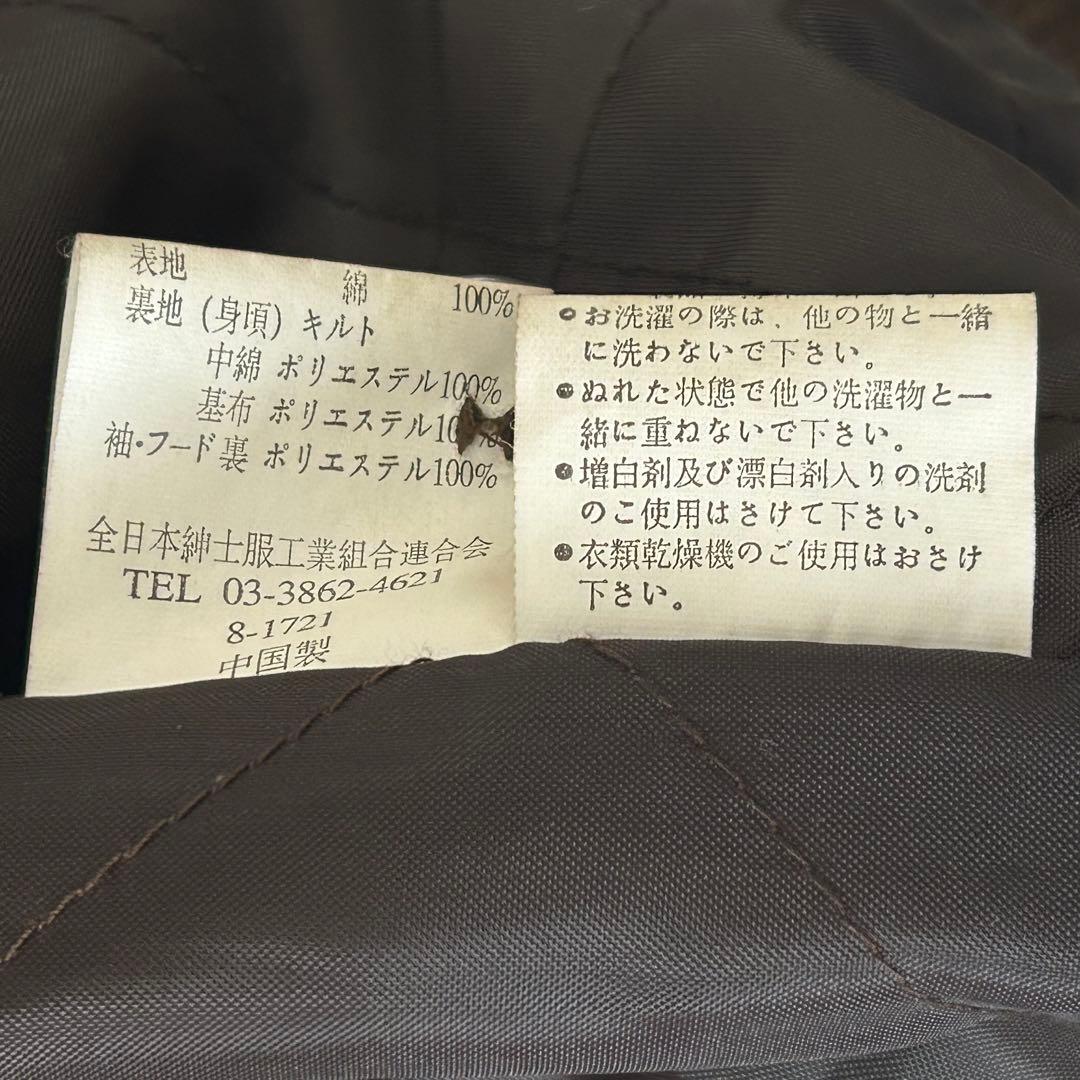 表地 綿 100%
裏地(身頃)キルト
中綿 ポリエステル100%
基布 ポリエステル100%
袖・フード裏 ポリエステル100%
全日本紳士服工業組合連合会
TEL 03-3862-4621
8-1721
中国製
●お洗濯の際は、他の物と一緒
に洗わないで下さい。
●ぬれた状態で他の洗濯物と一
緒に重ねないで下さい。
●増白剤及び漂白剤入りの洗剤
のご使用はさけて下さい。
●衣類乾燥機のご使用はおさけ
下さい。